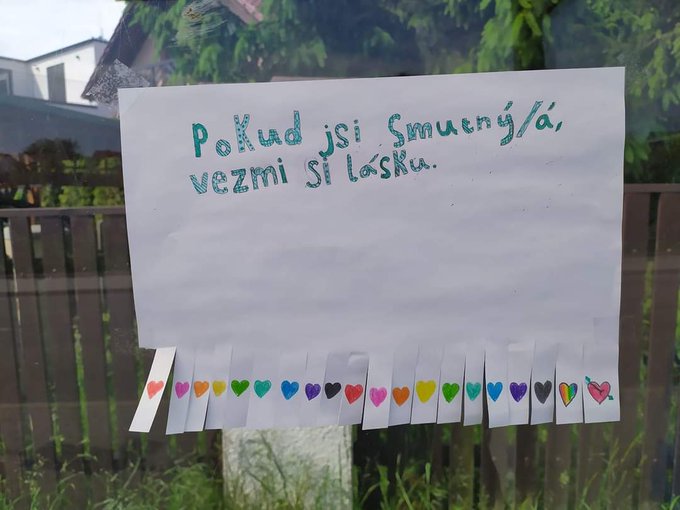 Pokud jsi smutný/á,
vezmi si lásku.